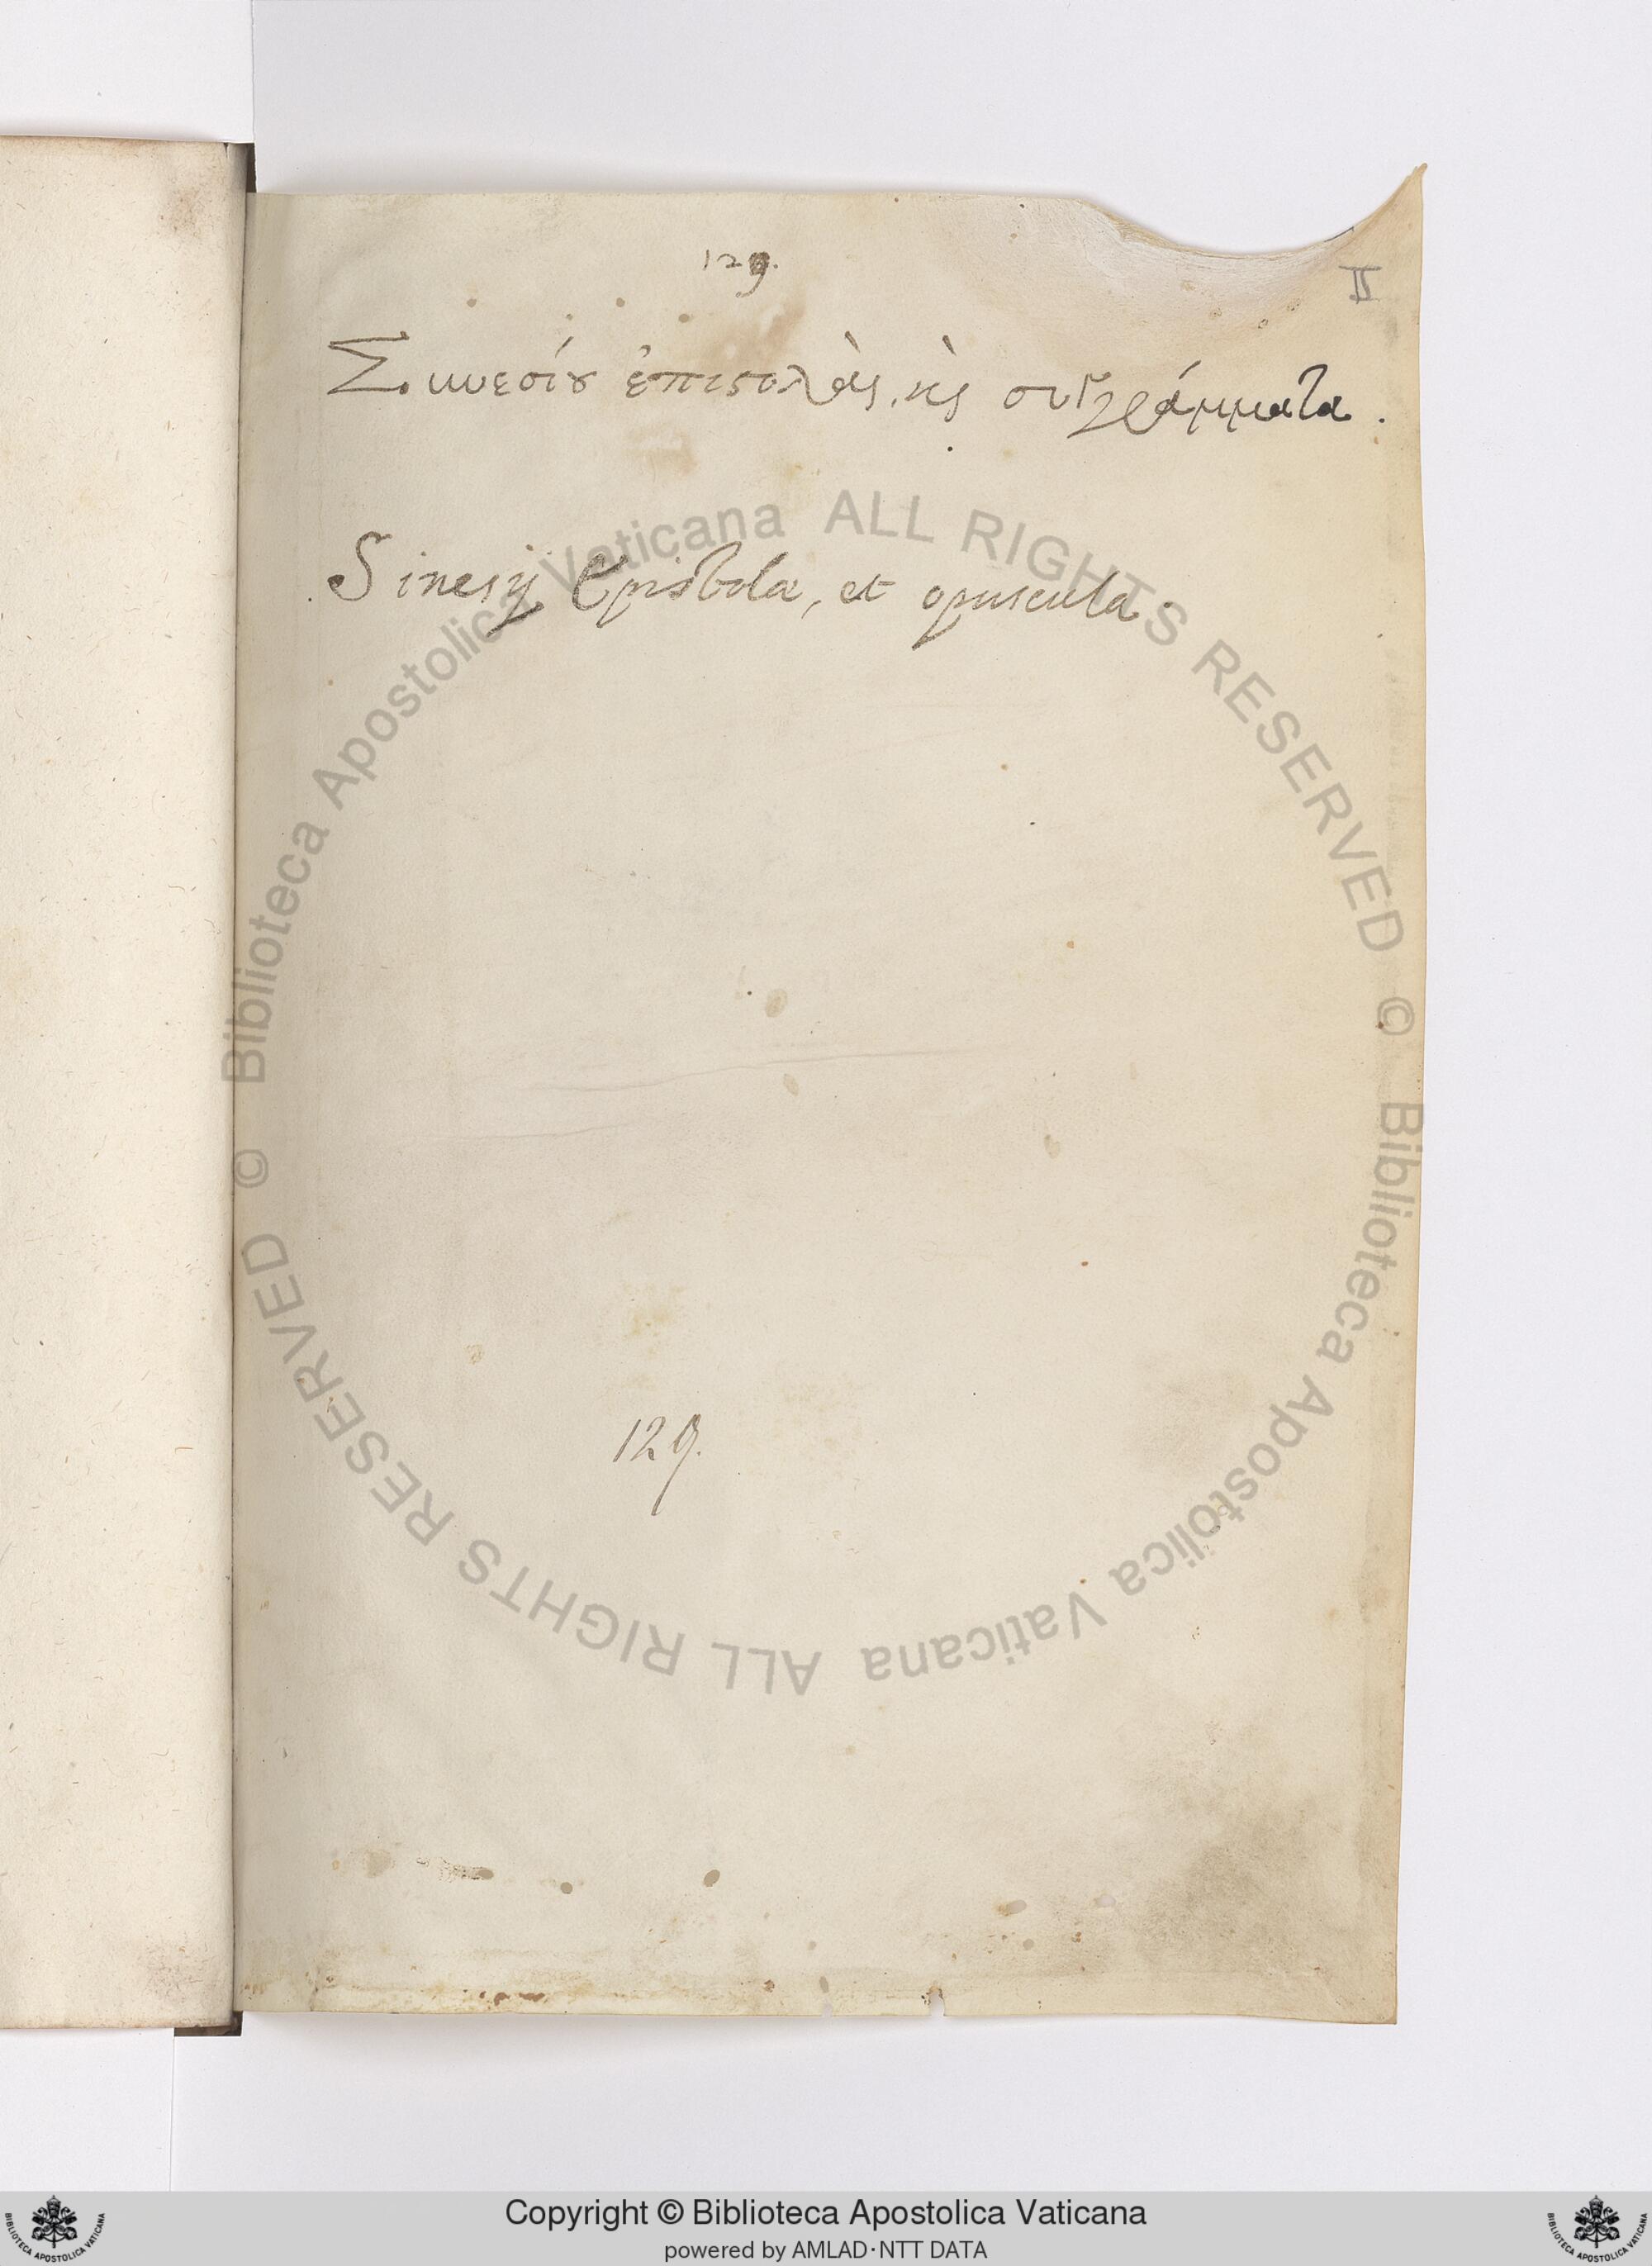 129.
II
Συνεσίου ἐπιστολὰς, κς συγγράμματα.
Sinesij Epistolæ, et opuscula.
129.
© Biblioteca Apostolica Vaticana ALL RIGHTS RESERVED
© Biblioteca Apostolica Vaticana ALL RIGHTS RESERVED
BIBLIOTECA APOSTOLICA VATICANA
Copyright © Biblioteca Apostolica Vaticana
powered by AMLAD·NTT DATA
BIBLIOTECA APOSTOLICA VATICANA